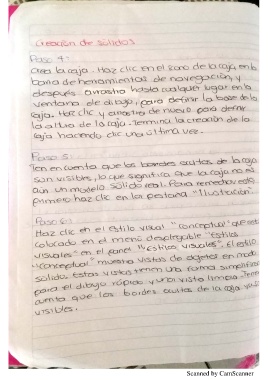 Creación de sólidos
Paso 4:
Crea la caja. Haz clic en el icono de la caja, en la
barra de herramientas de navegación, y
después arrastra hasta cualquier lugar en la
ventana de dibujo, para definir la base de la
caja. Haz clic y arrastra de nuevo para definir
la altura de la caja. Termina la creación de la
caja haciendo clic una última vez.
Paso 5:
Ten en cuenta que los bordes ocultos de la caja
son visibles, lo que significa que la caja no es
aún un modelo sólido real. Para remediar esto,
primero haz clic en la pestaña "Ilustración".
Paso 6:
Haz clic en el estilo visual "conceptual" que está
colocado en el menú desplegable "Estilos
visuales" en el panel "Estilos visuales". El estilo
"conceptual" muestra vistas de objetos en modo
sólido. Estas vistas tienen una forma simplificada
para el dibujo rápido y un visto limpio. Ten en
cuenta que los bordes ocultos de la caja ya no
visibles.
Scanned by CamScanner